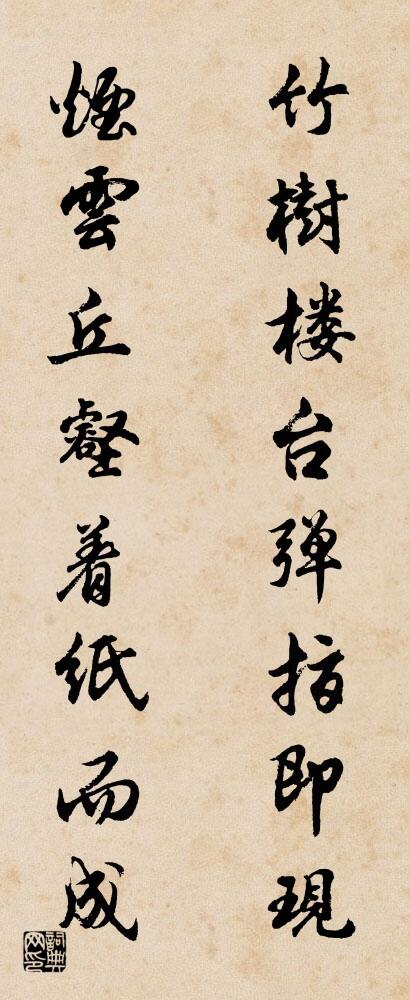 竹樹楼台弹指即現
煙雲丘壑着紙而成
詞典网印